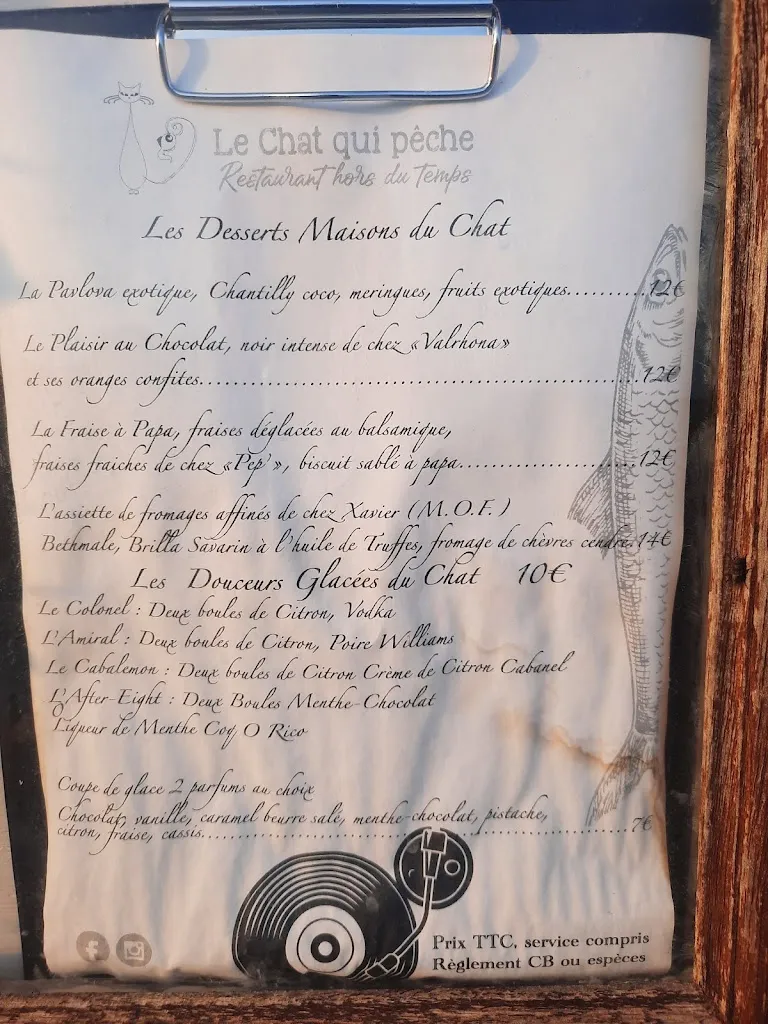 Le Chat qui pêche
Restaurant hors du temps
Les Desserts Maisons du Chat
La Pavlova exotique, Chantilly coco, meringues, fruits exotiques..........12€
Le Plaisir au Chocolat, noir intense de chez «Valrhona»
et ses oranges confites......................................................12€
La Fraise à Papa, fraises déglacées au balsamique,
fraises fraiches de chez «Pep'», biscuit sablé à papa......................12€
L'assiette de fromages affinés de chez Xavier (M.O.F.)
Bethmale, Brilla Savarin à l'huile de Truffes, fromage de chèvres cendre.14€
Les Douceurs Glacées du Chat 10€
Le Colonel : Deux boules de Citron, Vodka
L'Amiral : Deux boules de Citron, Poire Williams
Le Cabalemon : Deux boules de Citron Crème de Citron Cabanel
L'After-Eight : Deux Boules Menthe-Chocolat
Liqueur de Menthe Coq O Rico
Coupe de glace 2 parfums au choix
Chocolat, vanille, caramel beurre salé, menthe-chocolat, pistache,
citron, fraise, cassis.......................................................7€
Prix TTC, service compris
Règlement CB ou espèces